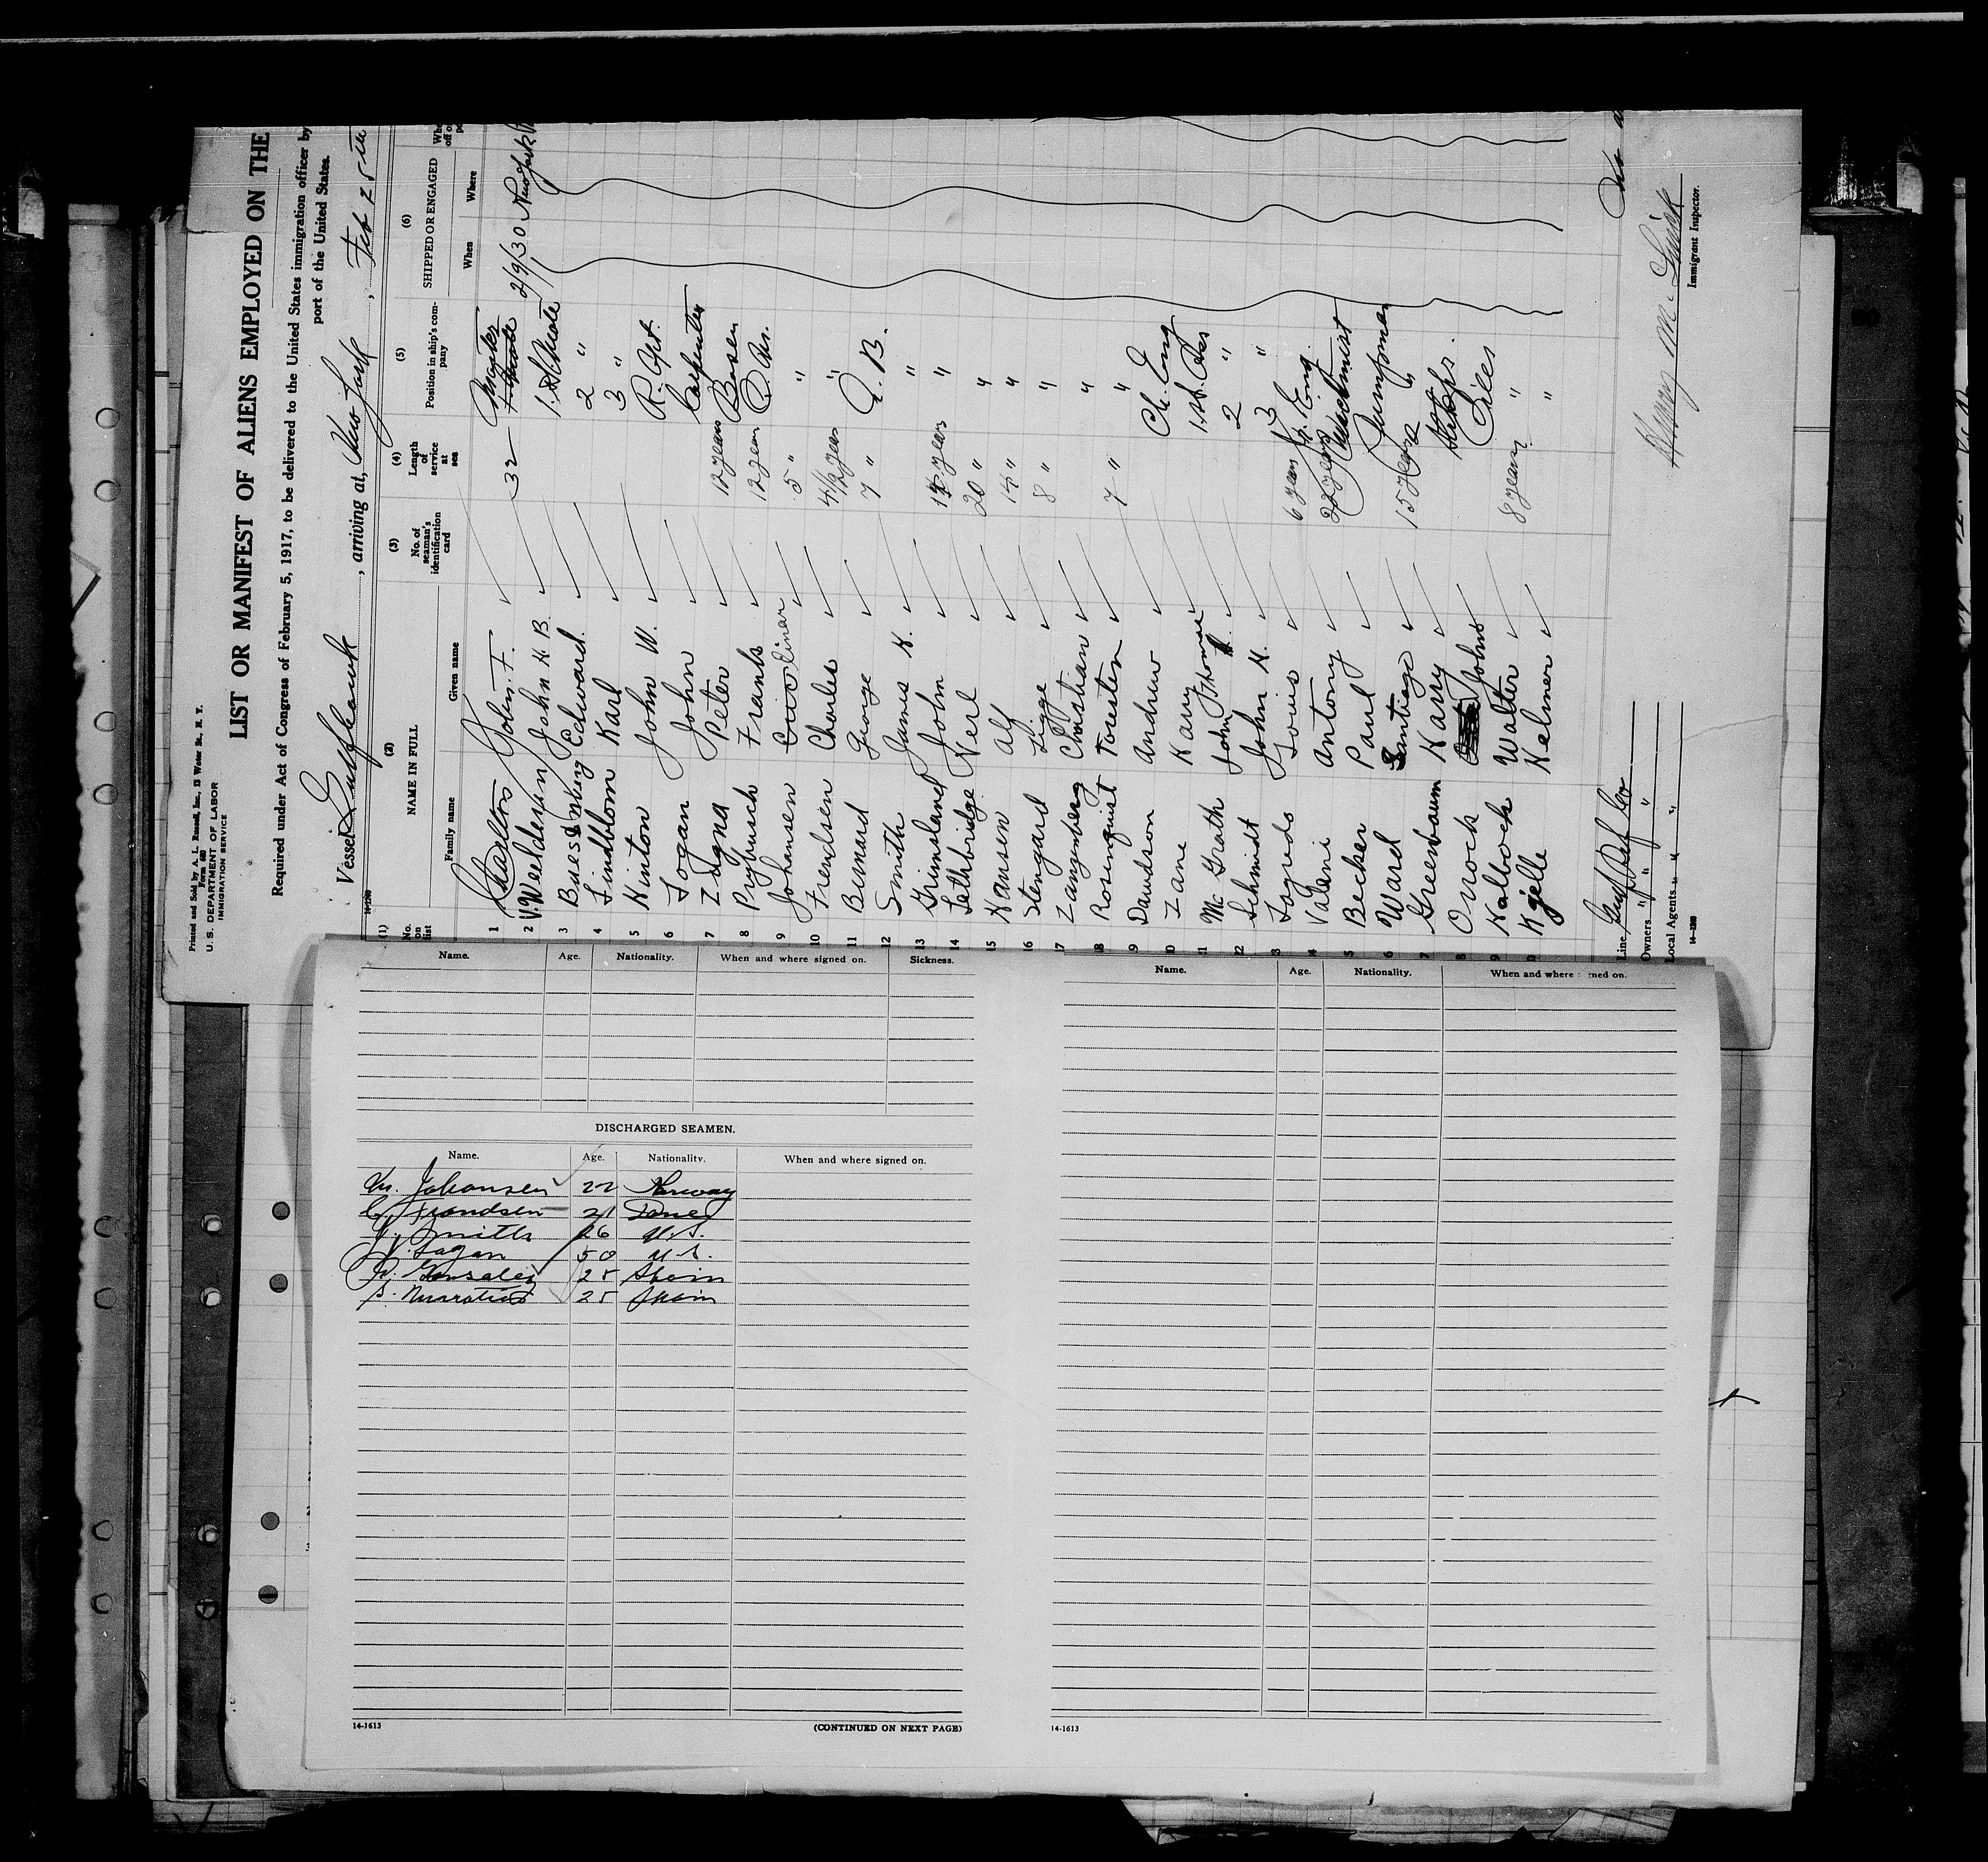 Printed and Sold by A. L. Russell, Inc., 13 Water St., N. Y.
Form 680
U. S. DEPARTMENT OF LABOR
IMMIGRATION SERVICE
LIST OR MANIFEST OF ALIENS EMPLOYED ON THE
Required under Act of Congress of February 5, 1917, to be delivered to the United States immigration officer by
port of the United States.
Vessel Gulfhawk, arriving at, New York, Feb 25th
14-1240
(1) No. on list
(2) NAME IN FULL
Family name Given name
(3) No. of seaman's identification card
(4) Length of service at sea
(5) Position in ship's company
(6) SHIPPED OR ENGAGED
When Where
1 Charlton John F. 32 Master 2/9/30 New York
2 V. Weeldesen John H. B. 1st Mate
3 Edward 2 "
4 Lindblom Karl 3 "
5 Hinton John W. R. Opt.
6 Logan John Carpenter
7 Zogna Peter 12 years Bosen
8 Prybusch Frank 12 years Q. Mr.
9 Johansen Einar 5 " "
10 Frendsen Charles 4 1/2 years "
11 Bernard George 7 " A. B.
12 Smith James H. "
13 Grimsland John years "
14 Lethbridge 20 " "
15 Hansen Alf 14 " "
16 Stengard 8 " "
17 Zangenberg Christian "
18 Rosenquist Tousten 7 " "
19 Davidson Andrew Ch. Eng
20 Zane Harry 1st. Ass
21 Mc Grath John Thomas 2 "
22 Schmidt John H. 3 "
23 Louis 6 years Jr. Eng.
24 Valeni Antony 22 years Machinist
25 Becker Paul Pumpman
26 Ward Santiago 15 years "
27 Greenbaum Harry
28 Onock John Oiler
29 Kalbock Walter 8 years "
30 Kjelle Helmer "
Line Gulf Ref Co
Owners " " "
Local Agents " " "
14-1240
Immigrant Inspector.
Name. Age. Nationality. When and where signed on. Sickness.
DISCHARGED SEAMEN.
Name. Age. Nationality. When and where signed on.
Johansen 22 Norway
C. Frandsen 21 Dane
J. Smith 26 U. S.
J. Logan 50 U. S.
Gonsalez 25 Spain
S. 25 Spain
14-1613
(CONTINUED ON NEXT PAGE)
Name. Age. Nationality. When and where signed on.
14-1613